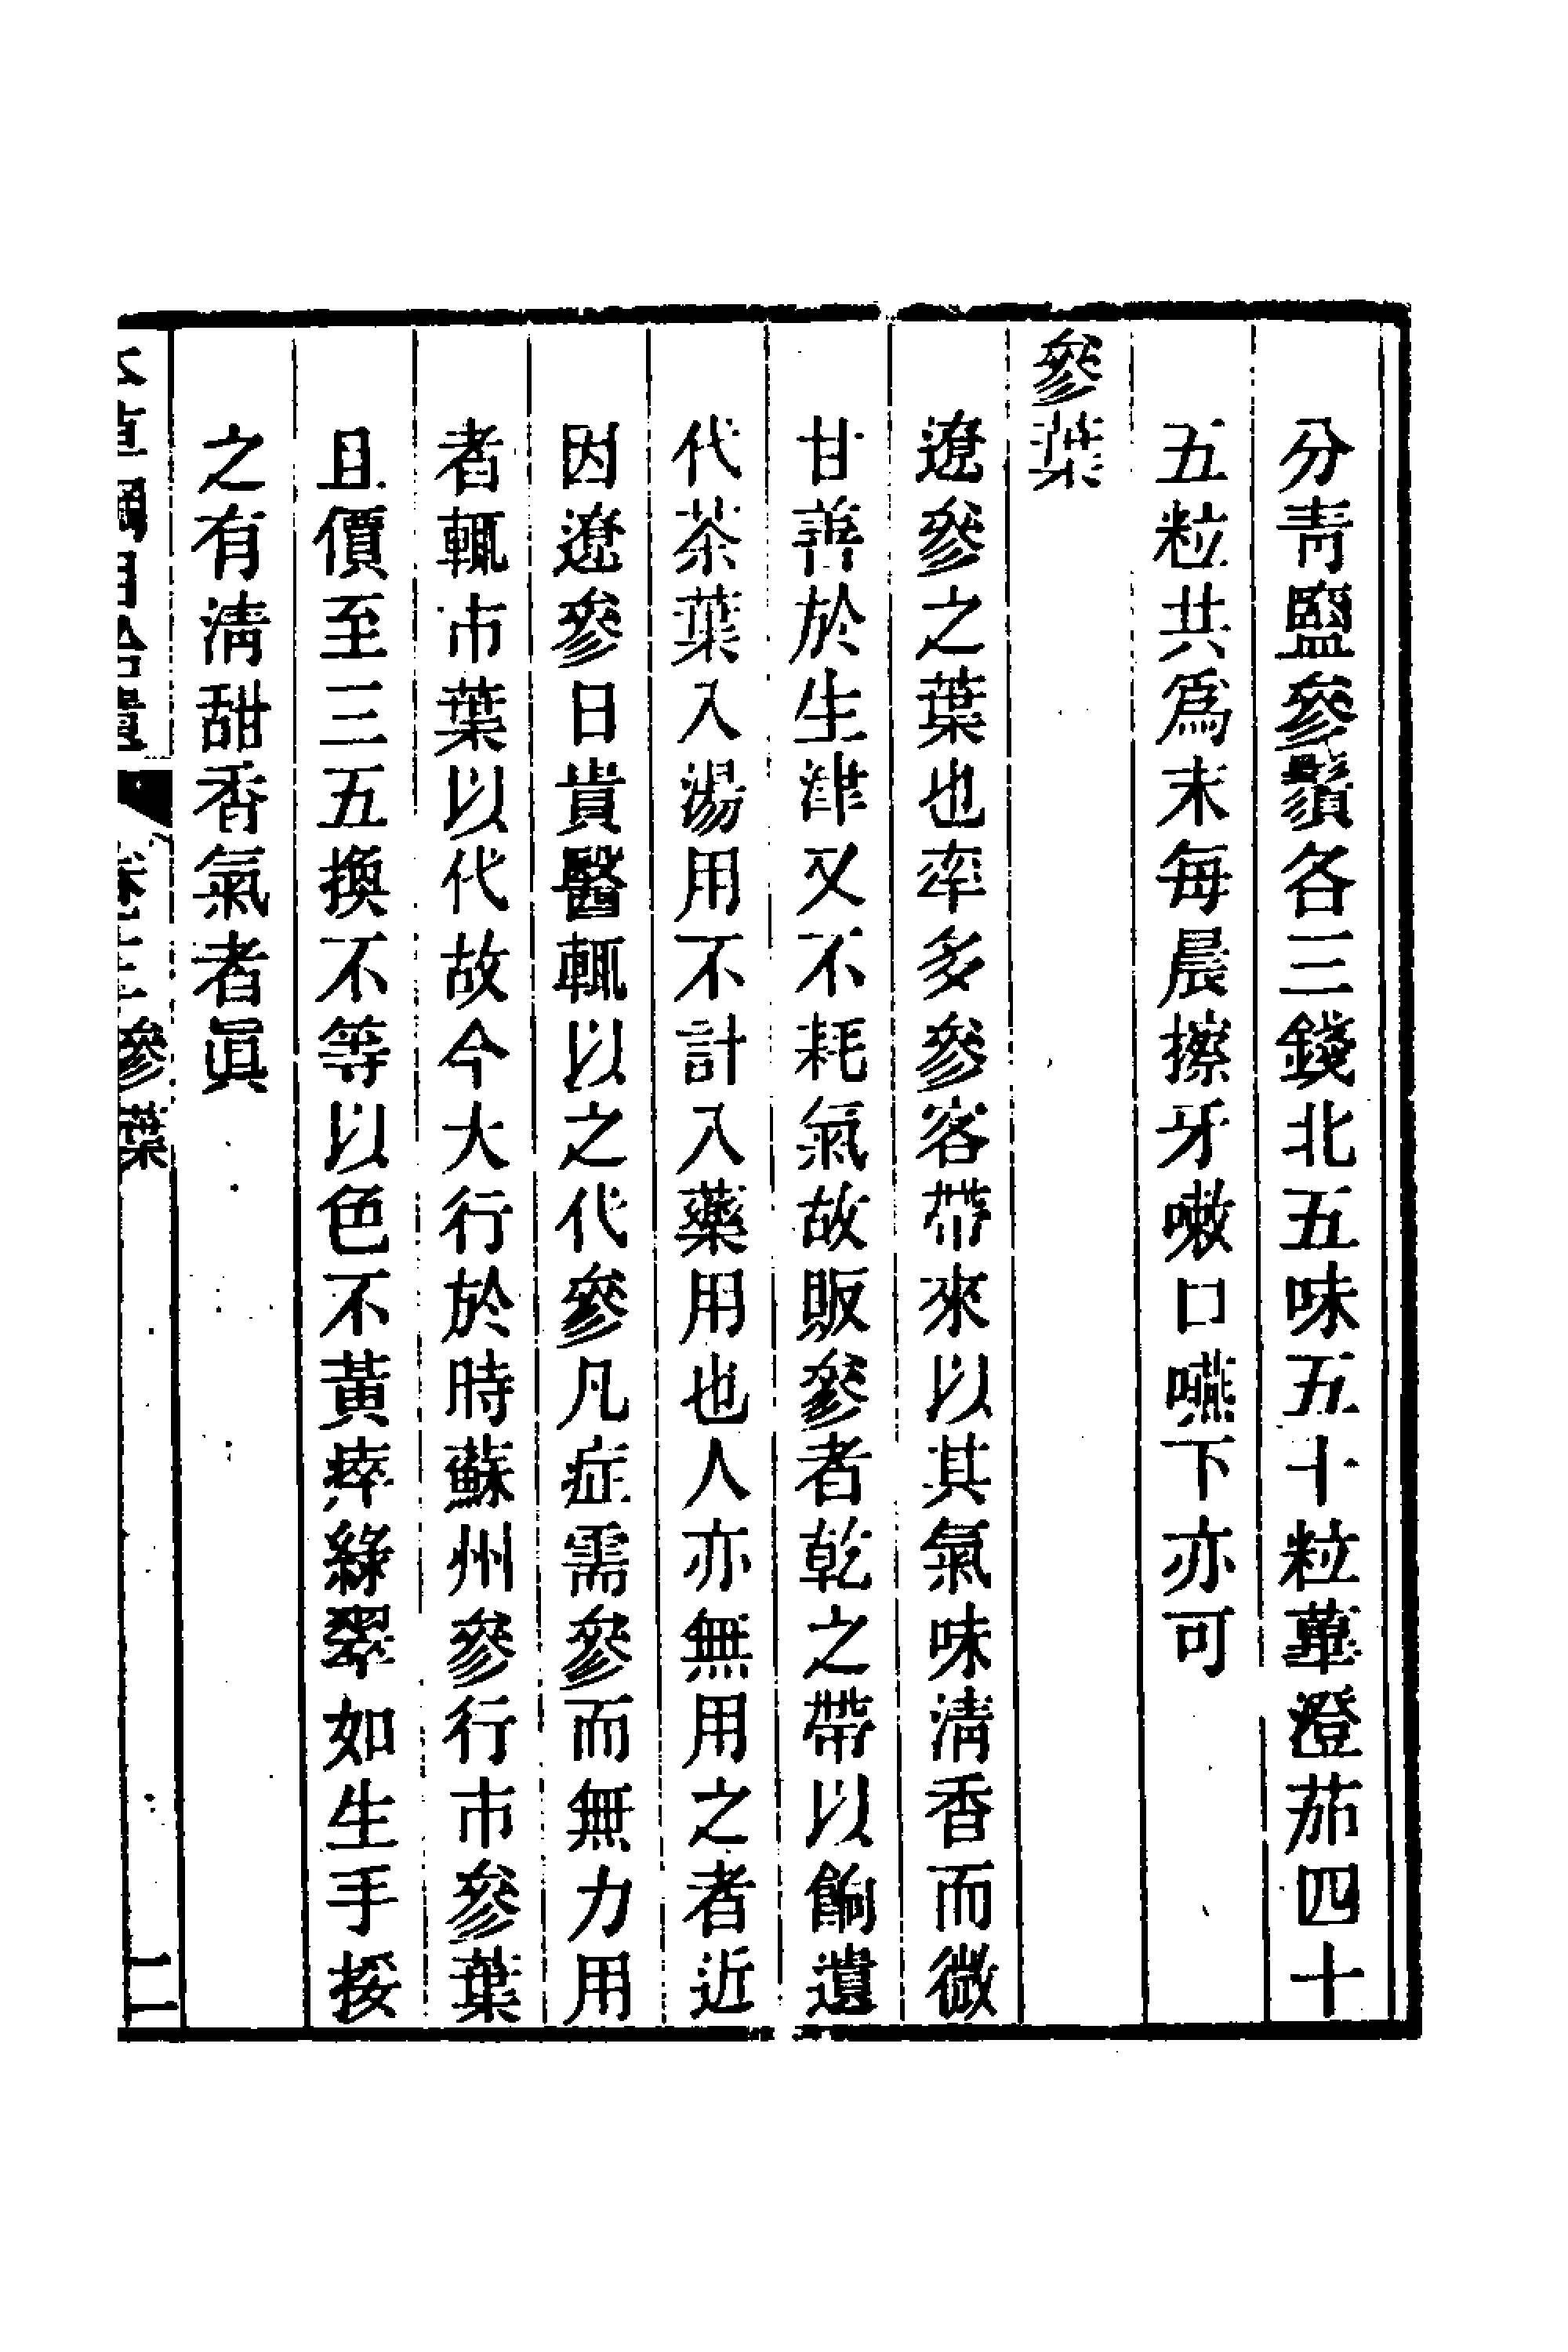 分靑鹽參鬚各三錢北五味五十粒蓽澄茄四十
五粒共爲末每晨擦牙嗽口嚥下亦可
參葉
遼參之葉也率多參客帶來以其氣味淸香而微
甘善於生津又不耗氣故販參者乾之帶以餉遺
代茶葉入湯用不計入藥用也人亦無用之者近
因遼參日貴醫輒以之代參凡症需參而無力用
者輒市葉以代故今大行於時蘇州參行市參葉
且價至三五換不等以色不黃瘁綠翠如生手挼
之有淸甜香氣者眞
本草綱目拾遺 卷三 參葉 二